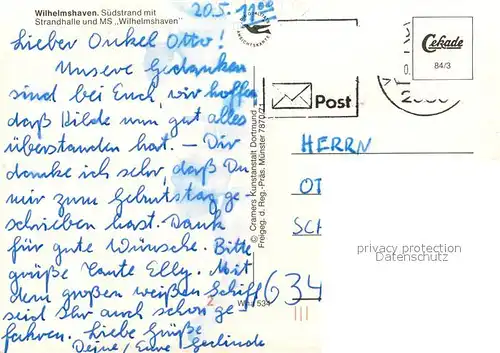 Wilhelmshaven, Südstrand mit
Strandhalle und MS „Wilhelmshaven"
20.5. 11.00
Lieber Onkel Otto!
Unsere Gedanken
sind bei Euch, wir hoffen,
daß Hilde nun gut alles
überstanden hat. – Dir
danke ich sehr, daß Du
mir zum Geburtstag ge-
schrieben hast. Dank
für gute Wünsche. Bitte
grüße Tante Elly. Mit
dem großen weißen Schiff
seid Ihr auch schon ge-
fahren. Liebe Grüße
Deine/Eure Gerlinde
© Cramers Kunstanstalt Dortmund
Freigeg. d. Reg.-Präs. Münster 7870/21
2
Whv 534
Cekade
84/3
Post
HERRN
OT
SC
634
privacy protection
Datenschutz